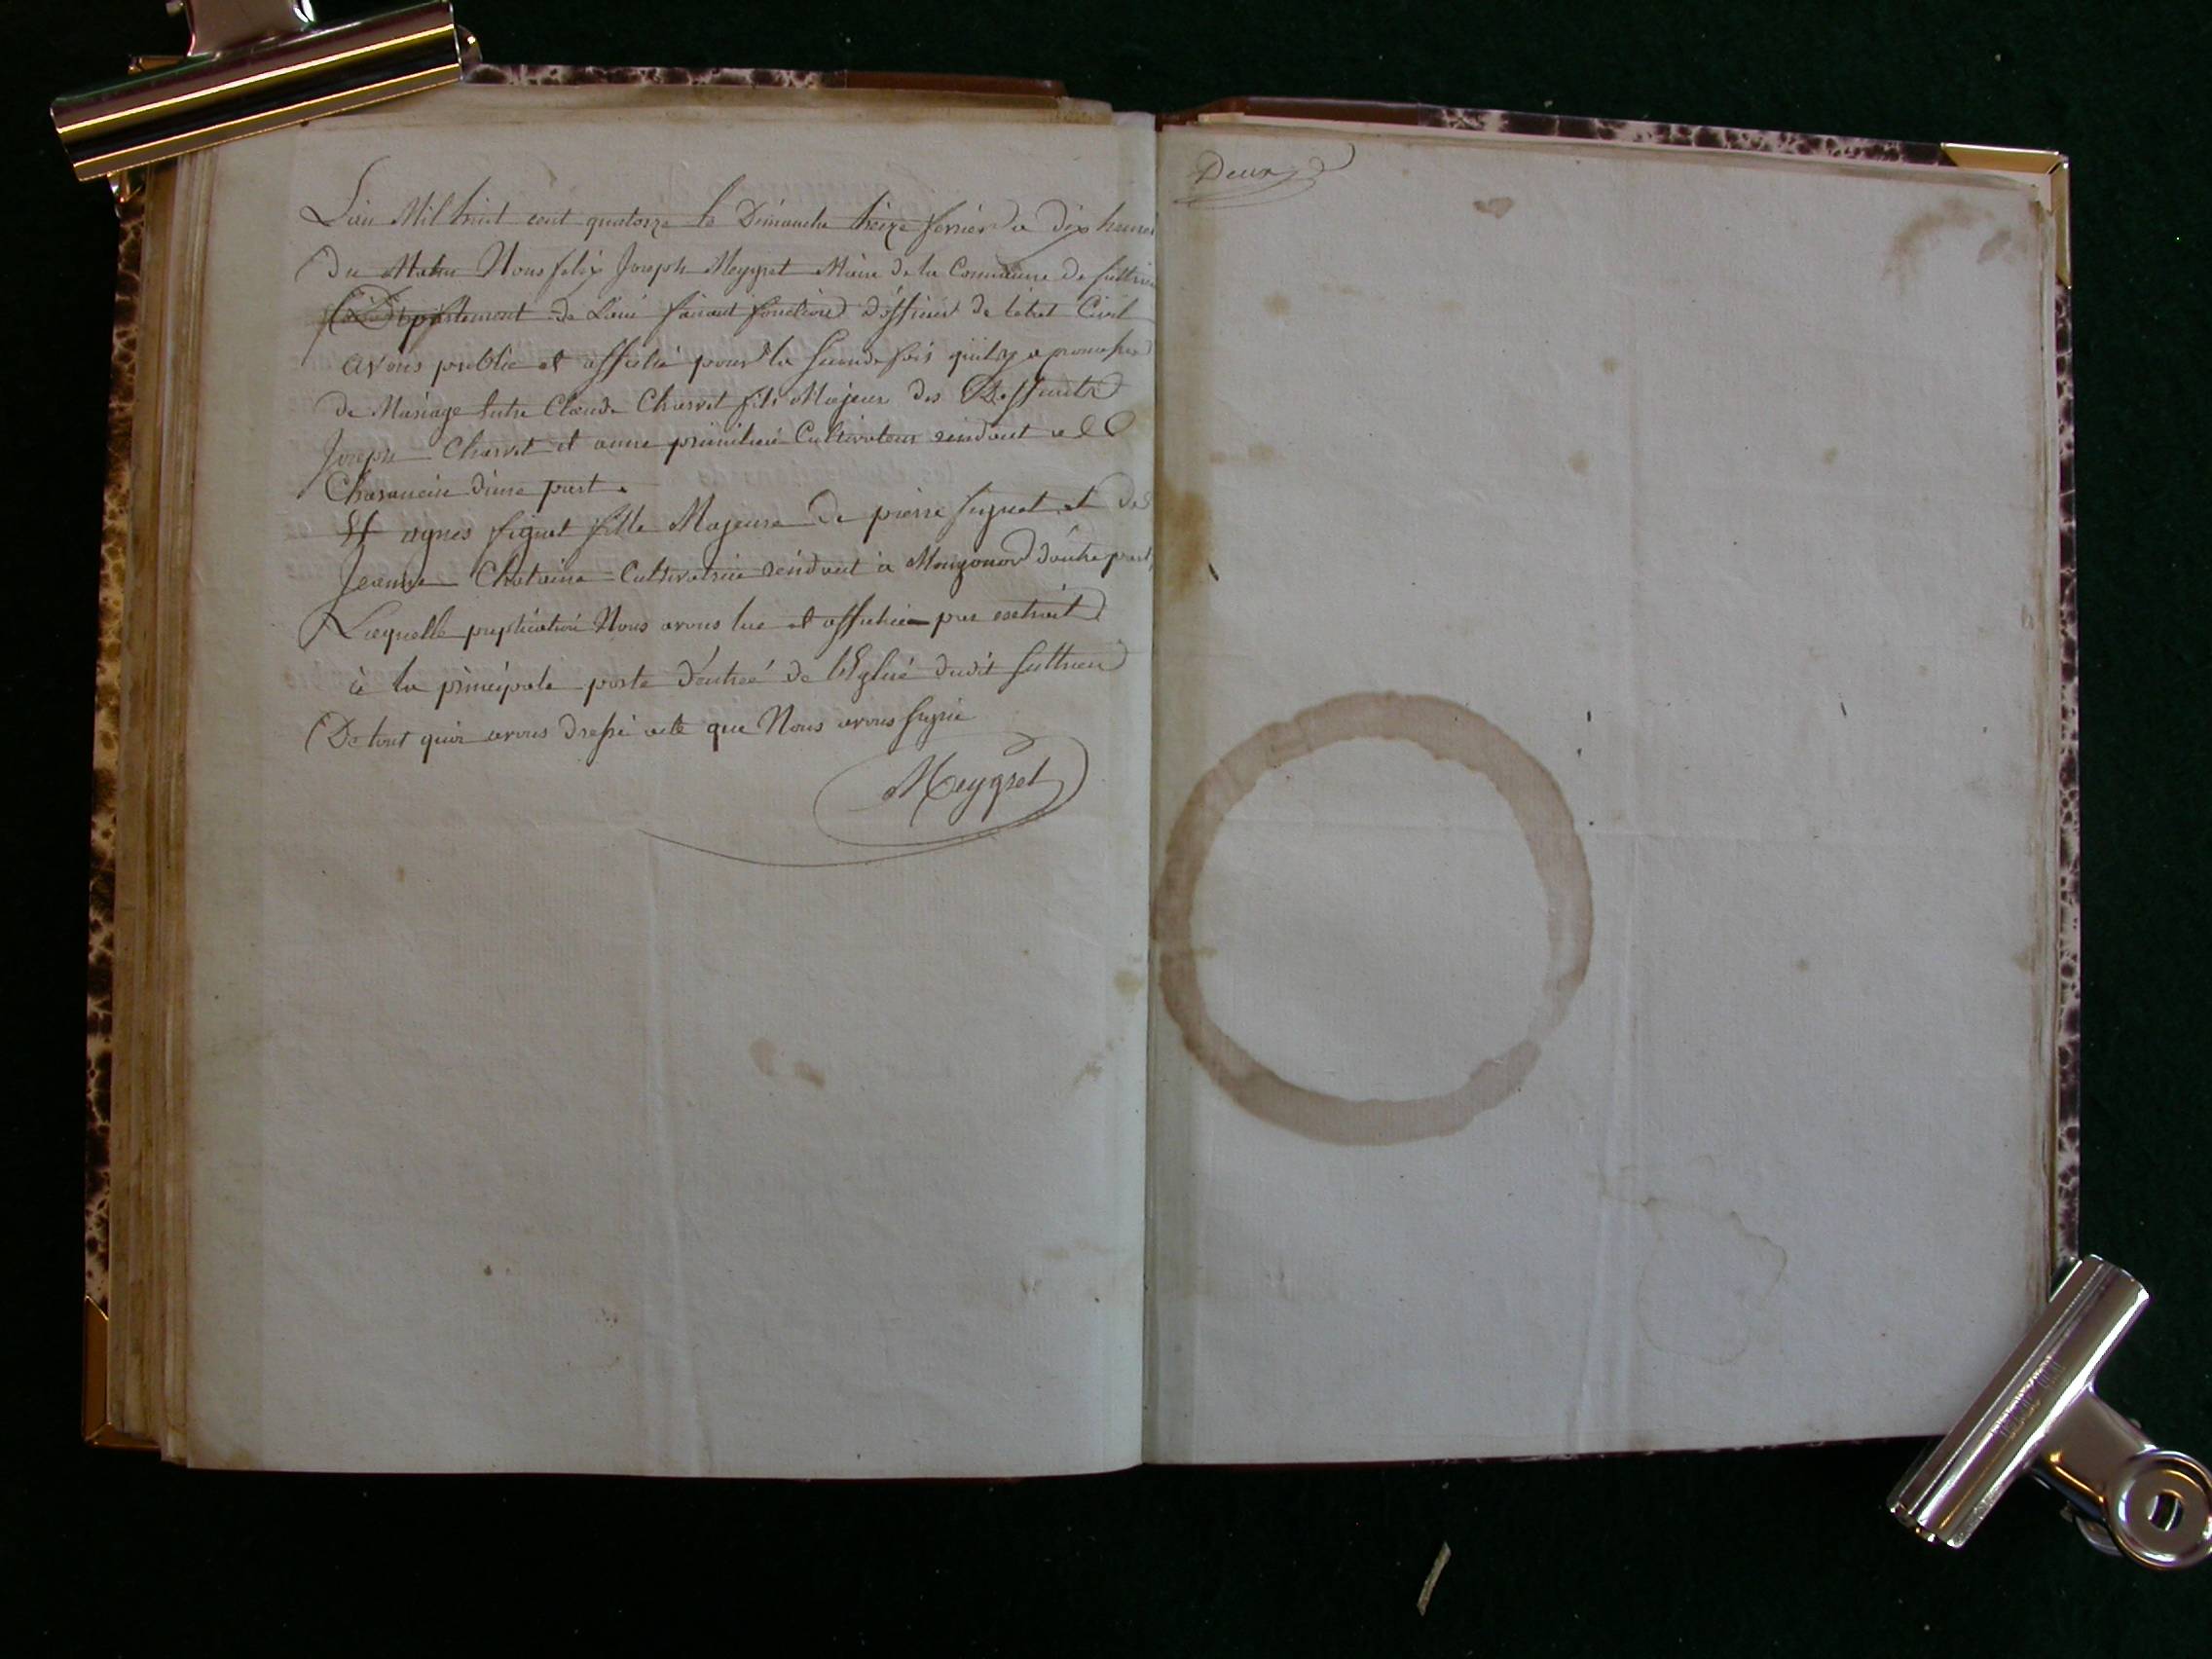 L'an Mil huit cent quatorze le Dimanche treize fevrier a dix heures
Du Matin Nous felix Joseph Meygret Maire de la Commune de Suttrieu
Département de Lain faisant fonctions d'officier de l'état Civil
avons publié et affiché pour la seconde fois quil y a promesse
de Mariage Entre Claude Charvet fils Majeur des Deffunts
Joseph Charvet et anne Cultivateur rendant a
Charancin d'une part.
Et agnes figuet fille Majeure de pierre figuet et de
Jeanne Chataine Cultivatrice rendant à d'autre part,
Laquelle publication Nous avons lue et affichée par extrait
à la principale porte d'entrée de l'Eglise dudit Suttrieu
De tout quoi avons dressé acte que Nous avons signé
Meygret
Deux